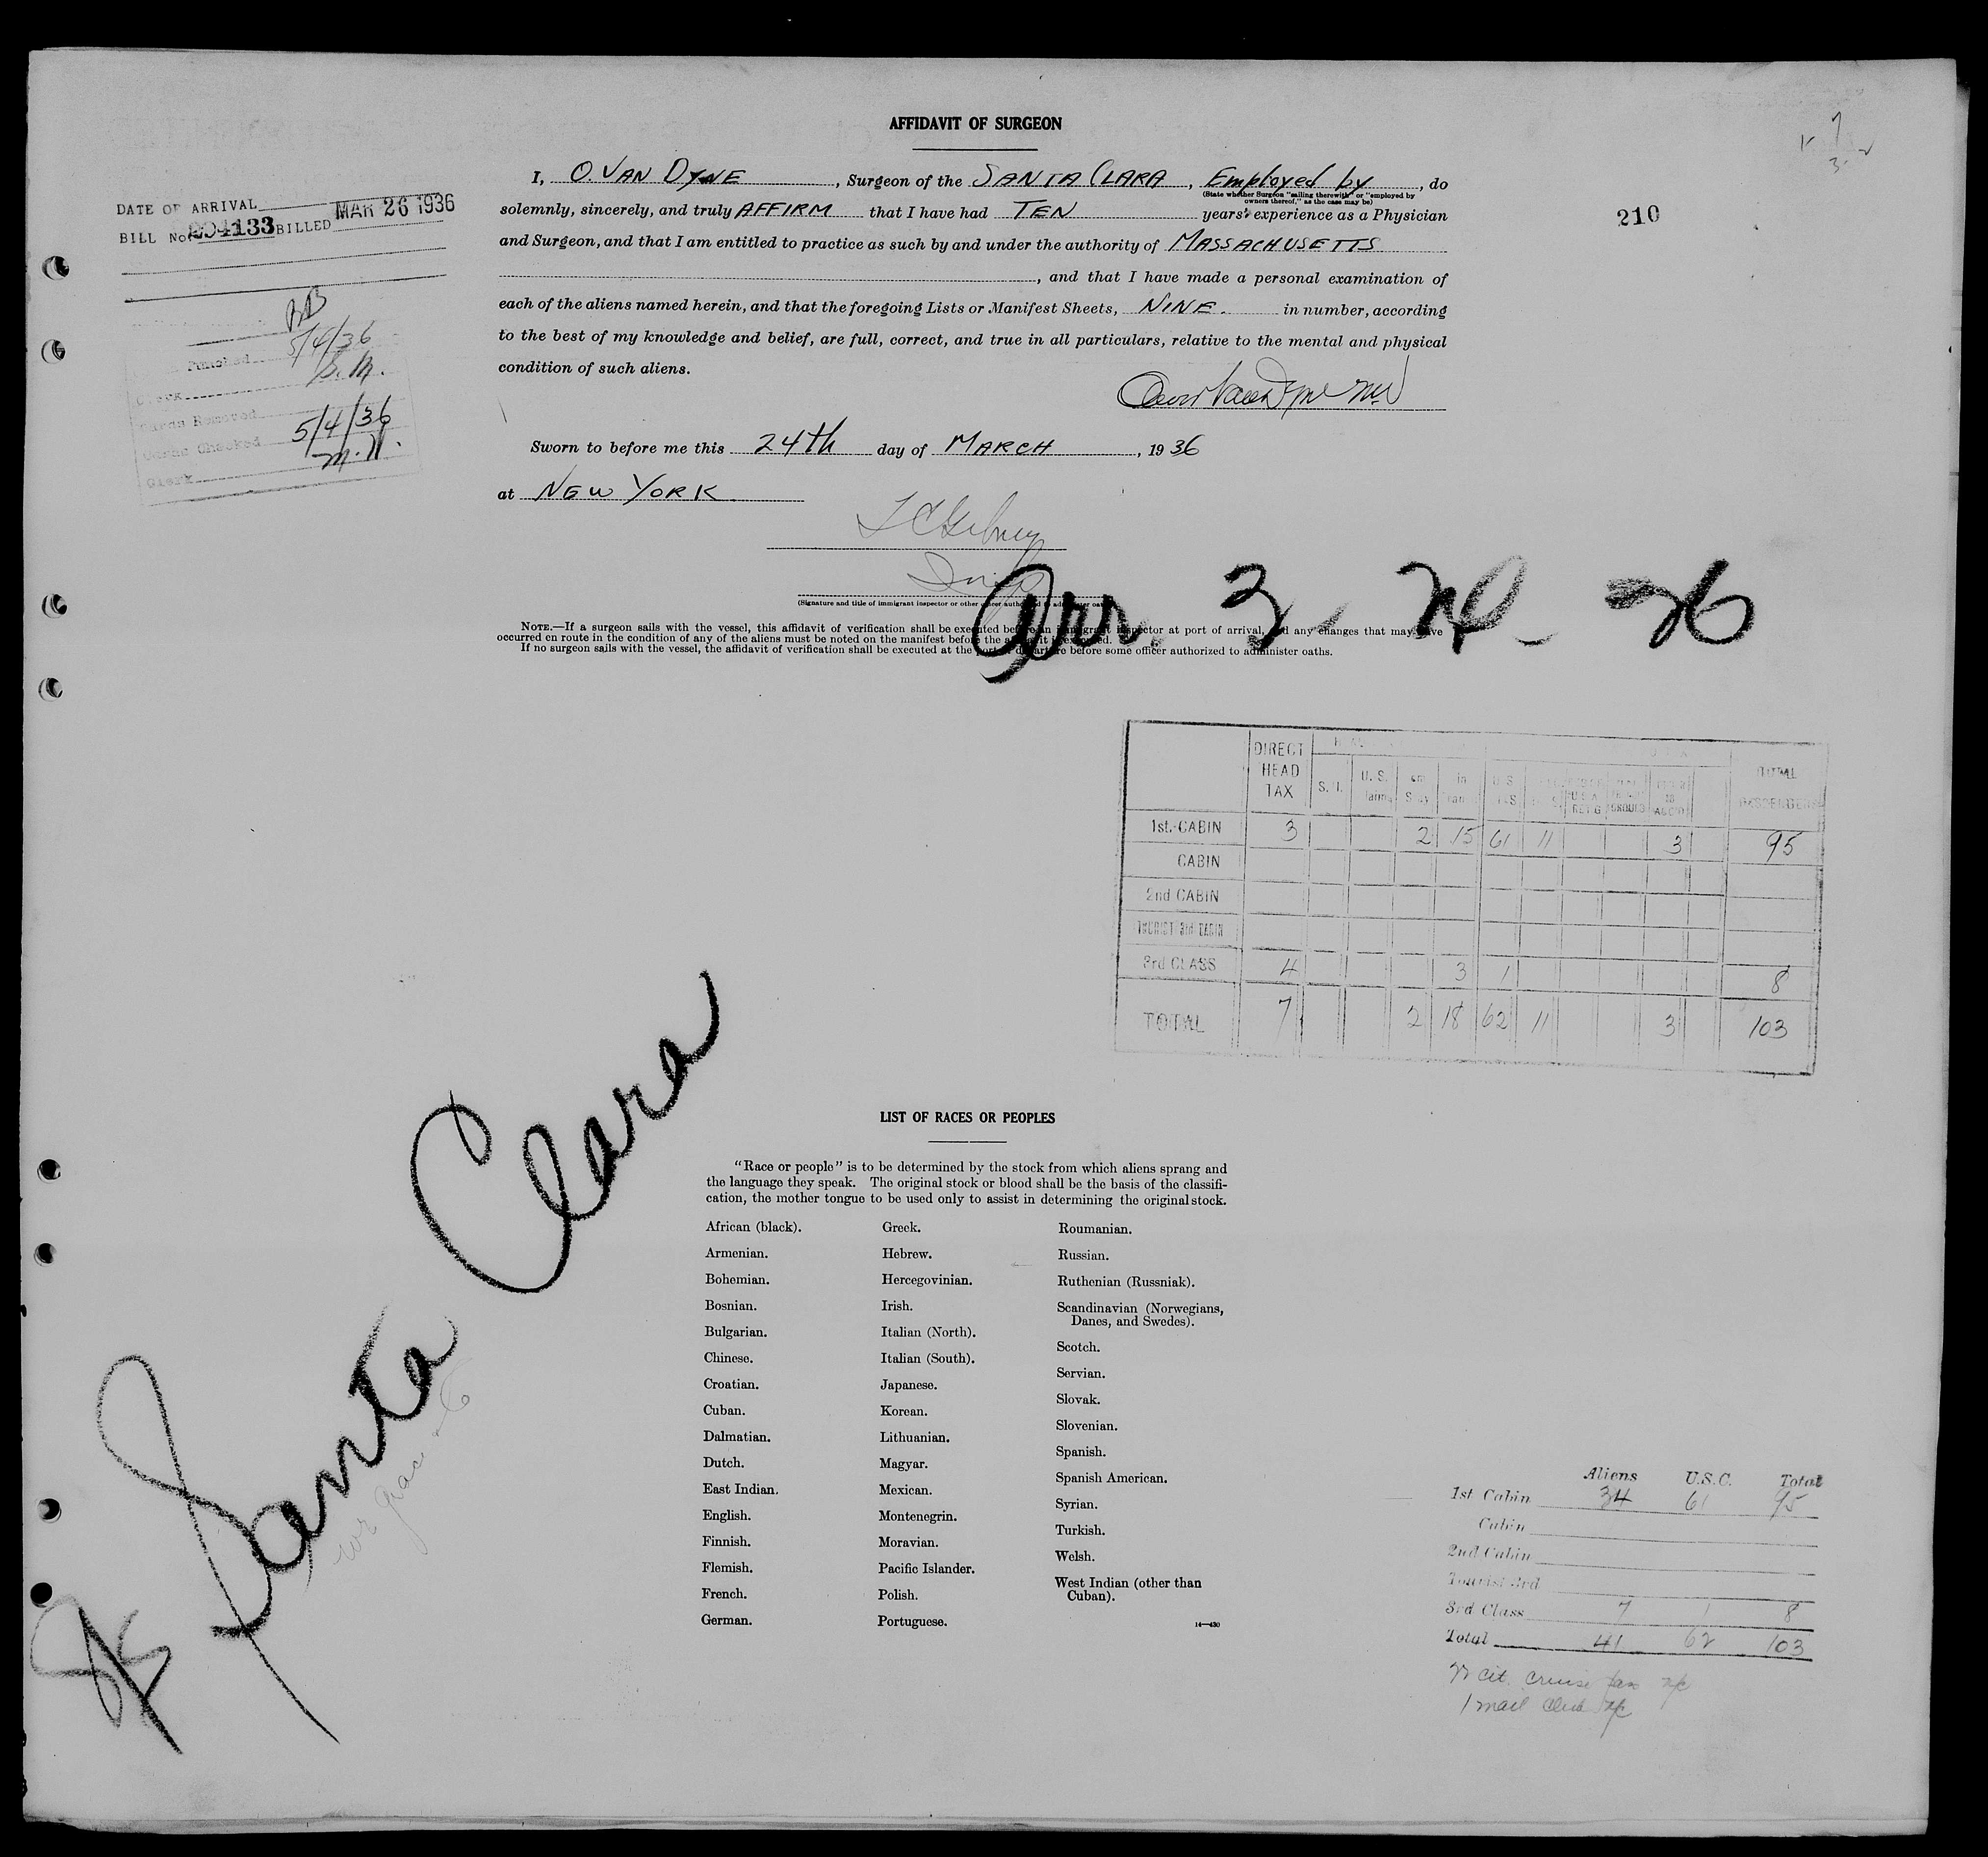 AFFIDAVIT OF SURGEON
I, O. VAN DYNE, Surgeon of the SANTA CLARA, Employed by, do
(State whether Surgeon "sailing therewith" or "employed by
owners thereof," as the case may be)
solemnly, sincerely, and truly AFFIRM that I have had TEN years' experience as a Physician
and Surgeon, and that I am entitled to practice as such by and under the authority of MASSACHUSETTS
, and that I have made a personal examination of
each of the aliens named herein, and that the foregoing Lists or Manifest Sheets, NINE. in number, according
to the best of my knowledge and belief, are full, correct, and true in all particulars, relative to the mental and physical
condition of such aliens.
Sworn to before me this 24th day of MARCH, 1936
at NEW YORK
(Signature and title of immigrant inspector or other officer authorized to administer oaths)
NOTE.—If a surgeon sails with the vessel, this affidavit of verification shall be executed before an immigrant inspector at port of arrival, and any changes that may have
occurred en route in the condition of any of the aliens must be noted on the manifest before the affidavit is executed.
If no surgeon sails with the vessel, the affidavit of verification shall be executed at the port of departure before some officer authorized to administer oaths.
DATE OF ARRIVAL
BILL No. 204133 BILLED MAR 26 1936
Punched 5/4/36
Clerk S.M.
Cards Removed
Cards Checked 5/4/36
Clerk
210
Arr. 3 - 24 - 36
DIRECT HEAD TAX
TOTAL PASSENGERS
1st. CABIN 3 2 15 61 11 3 95
CABIN
2nd CABIN
TOURIST 3rd CABIN
3rd CLASS 4 3 1 8
TOTAL 7 2 18 62 11 3 103
Santa Clara
SS
LIST OF RACES OR PEOPLES
"Race or people" is to be determined by the stock from which aliens sprang and
the language they speak. The original stock or blood shall be the basis of the classifi-
cation, the mother tongue to be used only to assist in determining the original stock.
African (black).
Armenian.
Bohemian.
Bosnian.
Bulgarian.
Chinese.
Croatian.
Cuban.
Dalmatian.
Dutch.
East Indian.
English.
Finnish.
Flemish.
French.
German.
Greek.
Hebrew.
Hercegovinian.
Irish.
Italian (North).
Italian (South).
Japanese.
Korean.
Lithuanian.
Magyar.
Mexican.
Montenegrin.
Moravian.
Pacific Islander.
Polish.
Portuguese.
Roumanian.
Russian.
Ruthenian (Russniak).
Scandinavian (Norwegians,
Danes, and Swedes).
Scotch.
Servian.
Slovak.
Slovenian.
Spanish.
Spanish American.
Syrian.
Turkish.
Welsh.
West Indian (other than
Cuban).
14—430
Aliens U.S.C. Total
1st Cabin 34 61 95
Cabin
2nd Cabin
Tourist 3rd
3rd Class 7 1 8
Total 41 62 103
cit. cruise
1 mail